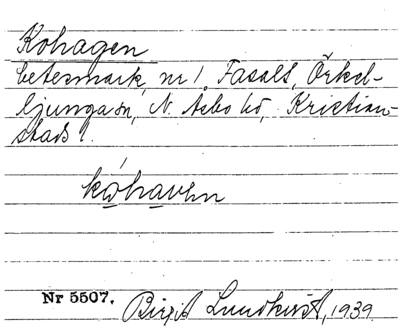 Kohagen
betesmark, nr 1 Fasalt, Örkel-
ljunga sn, N. Åsbo hd, Kristian-
stads l.
kóhaven
Nr 5507. Birgit Lundkvist, 1939